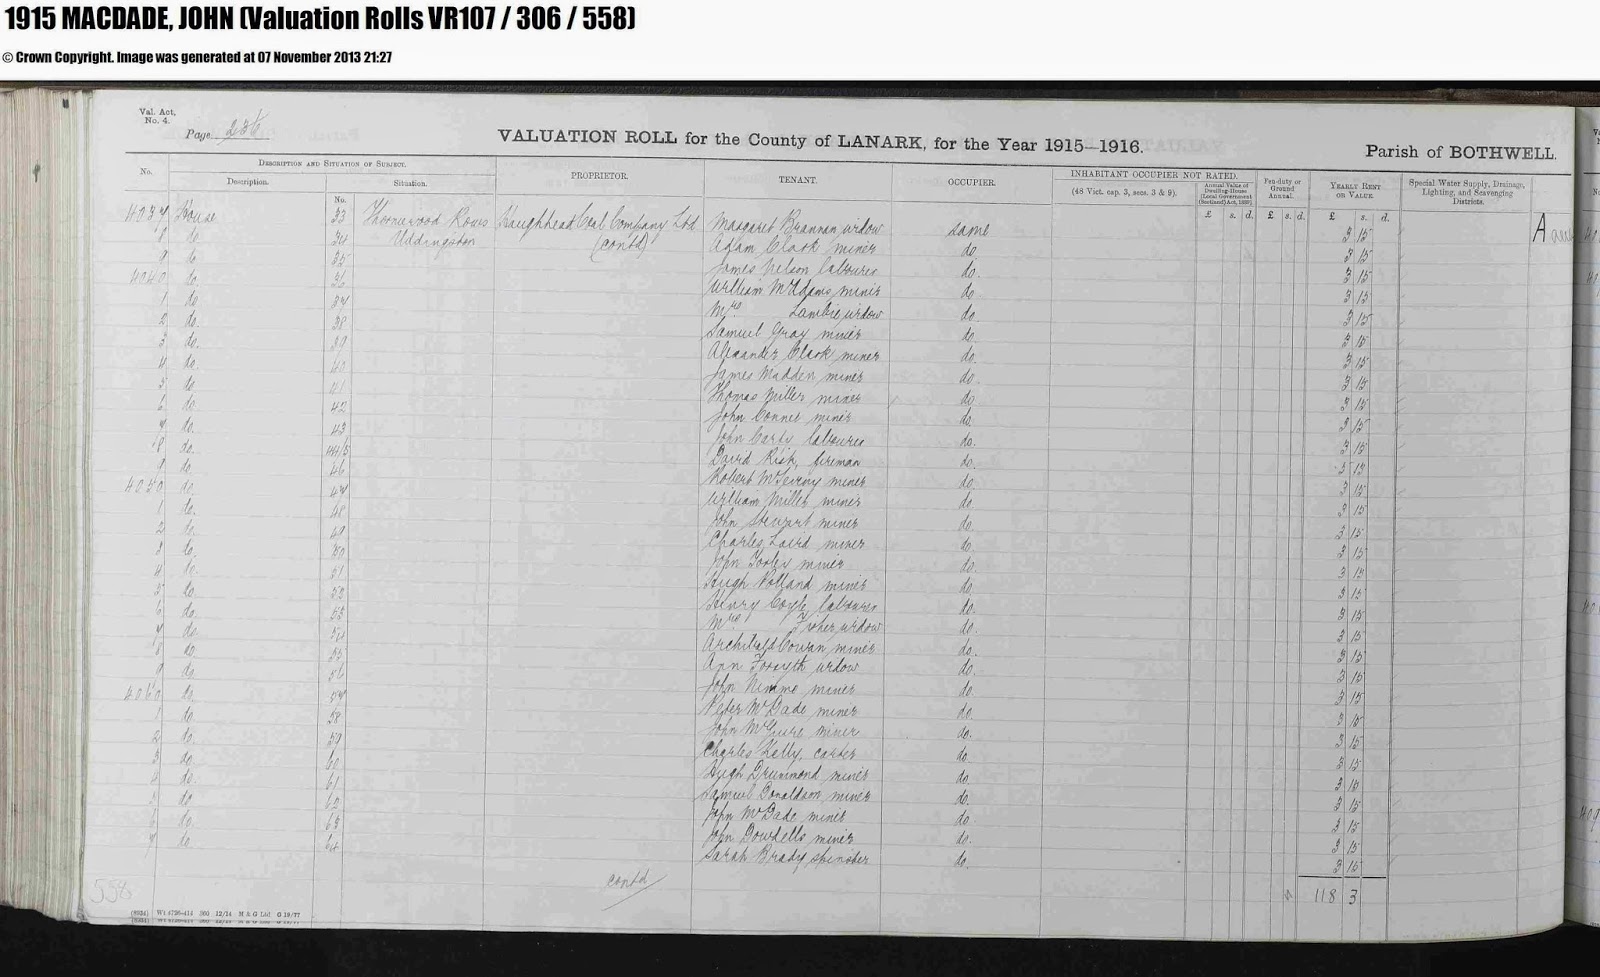 1915 MACDADE, JOHN (Valuation Rolls VR107 / 306 / 558)
© Crown Copyright. Image was generated at 07 November 2013 21:27
Val. Act, No. 4.
Page 236
VALUATION ROLL for the County of LANARK, for the Year 1915–1916.
Parish of BOTHWELL.
No. DESCRIPTION AND SITUATION OF SUBJECT. PROPRIETOR. TENANT. OCCUPIER. INHABITANT OCCUPIER NOT RATED. Feu-duty or Ground Annual. YEARLY RENT OR VALUE. Special Water Supply, Drainage, Lighting, and Scavenging Districts.
Description. Situation. (48 Vict. cap. 3, secs. 3 & 9). Annual Value of Dwelling-House
No. £ s. d. £ s. d. £ s. d.
4037 House 33 Thorniewood Rows Haughhead Coal Company Ltd Margaret Brannan widow same 3 15
8 do 34 Uddingston (contd) Adam Clark miner do 3 15
9 do 35 James Nelson labourer do. 3 15
4040 do. 36 William McAdams miner do 3 15
1 do 37 Mrs Lambie widow do. 3 15
2 do. 38 Samuel Gray miner do. 3 15
3 do. 39 Alexander Clark miner do. 3 15
4 do. 40 James Madden miner do. 3 15
5 do 41 Thomas Miller miner do 3 15
6 do. 42 John Connie miner do. 3 15
7 do. 43 John labourer do. 3 15
8 do. 44/5 David Risk, fireman do. 3 15
9 do. 46 Robert miner do 3 15
4050 do. 47 William Miller miner do 3 15
1 do. 48 John Stewart miner do. 3 15
2 do. 49 Charles Laird miner do 3 15
3 do. 50 John miner do. 3 15
4 do. 51 Hugh miner do. 3 15
5 do Henry Coyle labourer do. 3 15
6 do. 53 Mrs Fisher widow do. 3 15
7 do. 54 Archibald Cowan miner do. 3 15
8 do 55 Ann Forsyth widow do. 3 15
9 do 56 John Nimmo miner do. 3 15
4060 do. 57 Peter McDade miner do. 3 15
1 do. 58 John McGuire miner do. 3 15
2 do. 59 Charles Kelly, carter do. 3 15
3 do 60 Hugh Drummond miner do 3 15
4 do 61 Samuel Donaldson miner do. 3 15
5 do 62 John McDade miner do 3 15
6 do. 63 John Dowdells miner do. 3 15
7 do. 64 Sarah Brady spinster do. 3 15
contd
118 3
A
558
(8934) Wt 4726-414 500 12/14 M & G Ltd. G 19/77